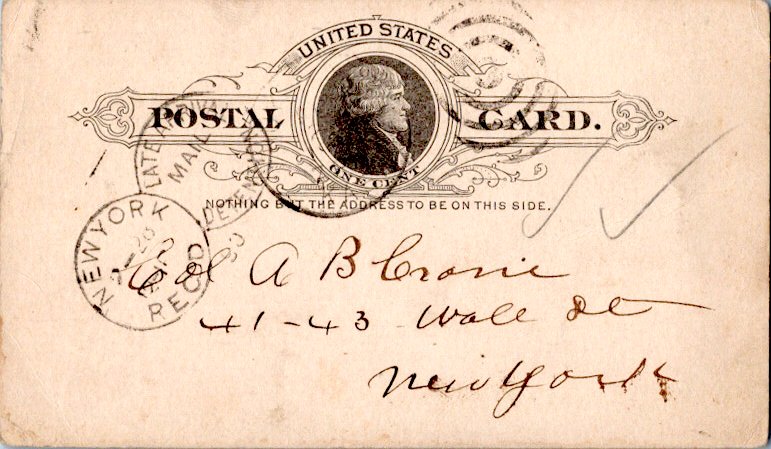 UNITED STATES
POSTAL CARD.
ONE CENT
NOTHING BUT THE ADDRESS TO BE ON THIS SIDE.
LATE
MAIL
DETENTION
NEW YORK
REC'D
Col A B Crane
41-43 Wall St
New York